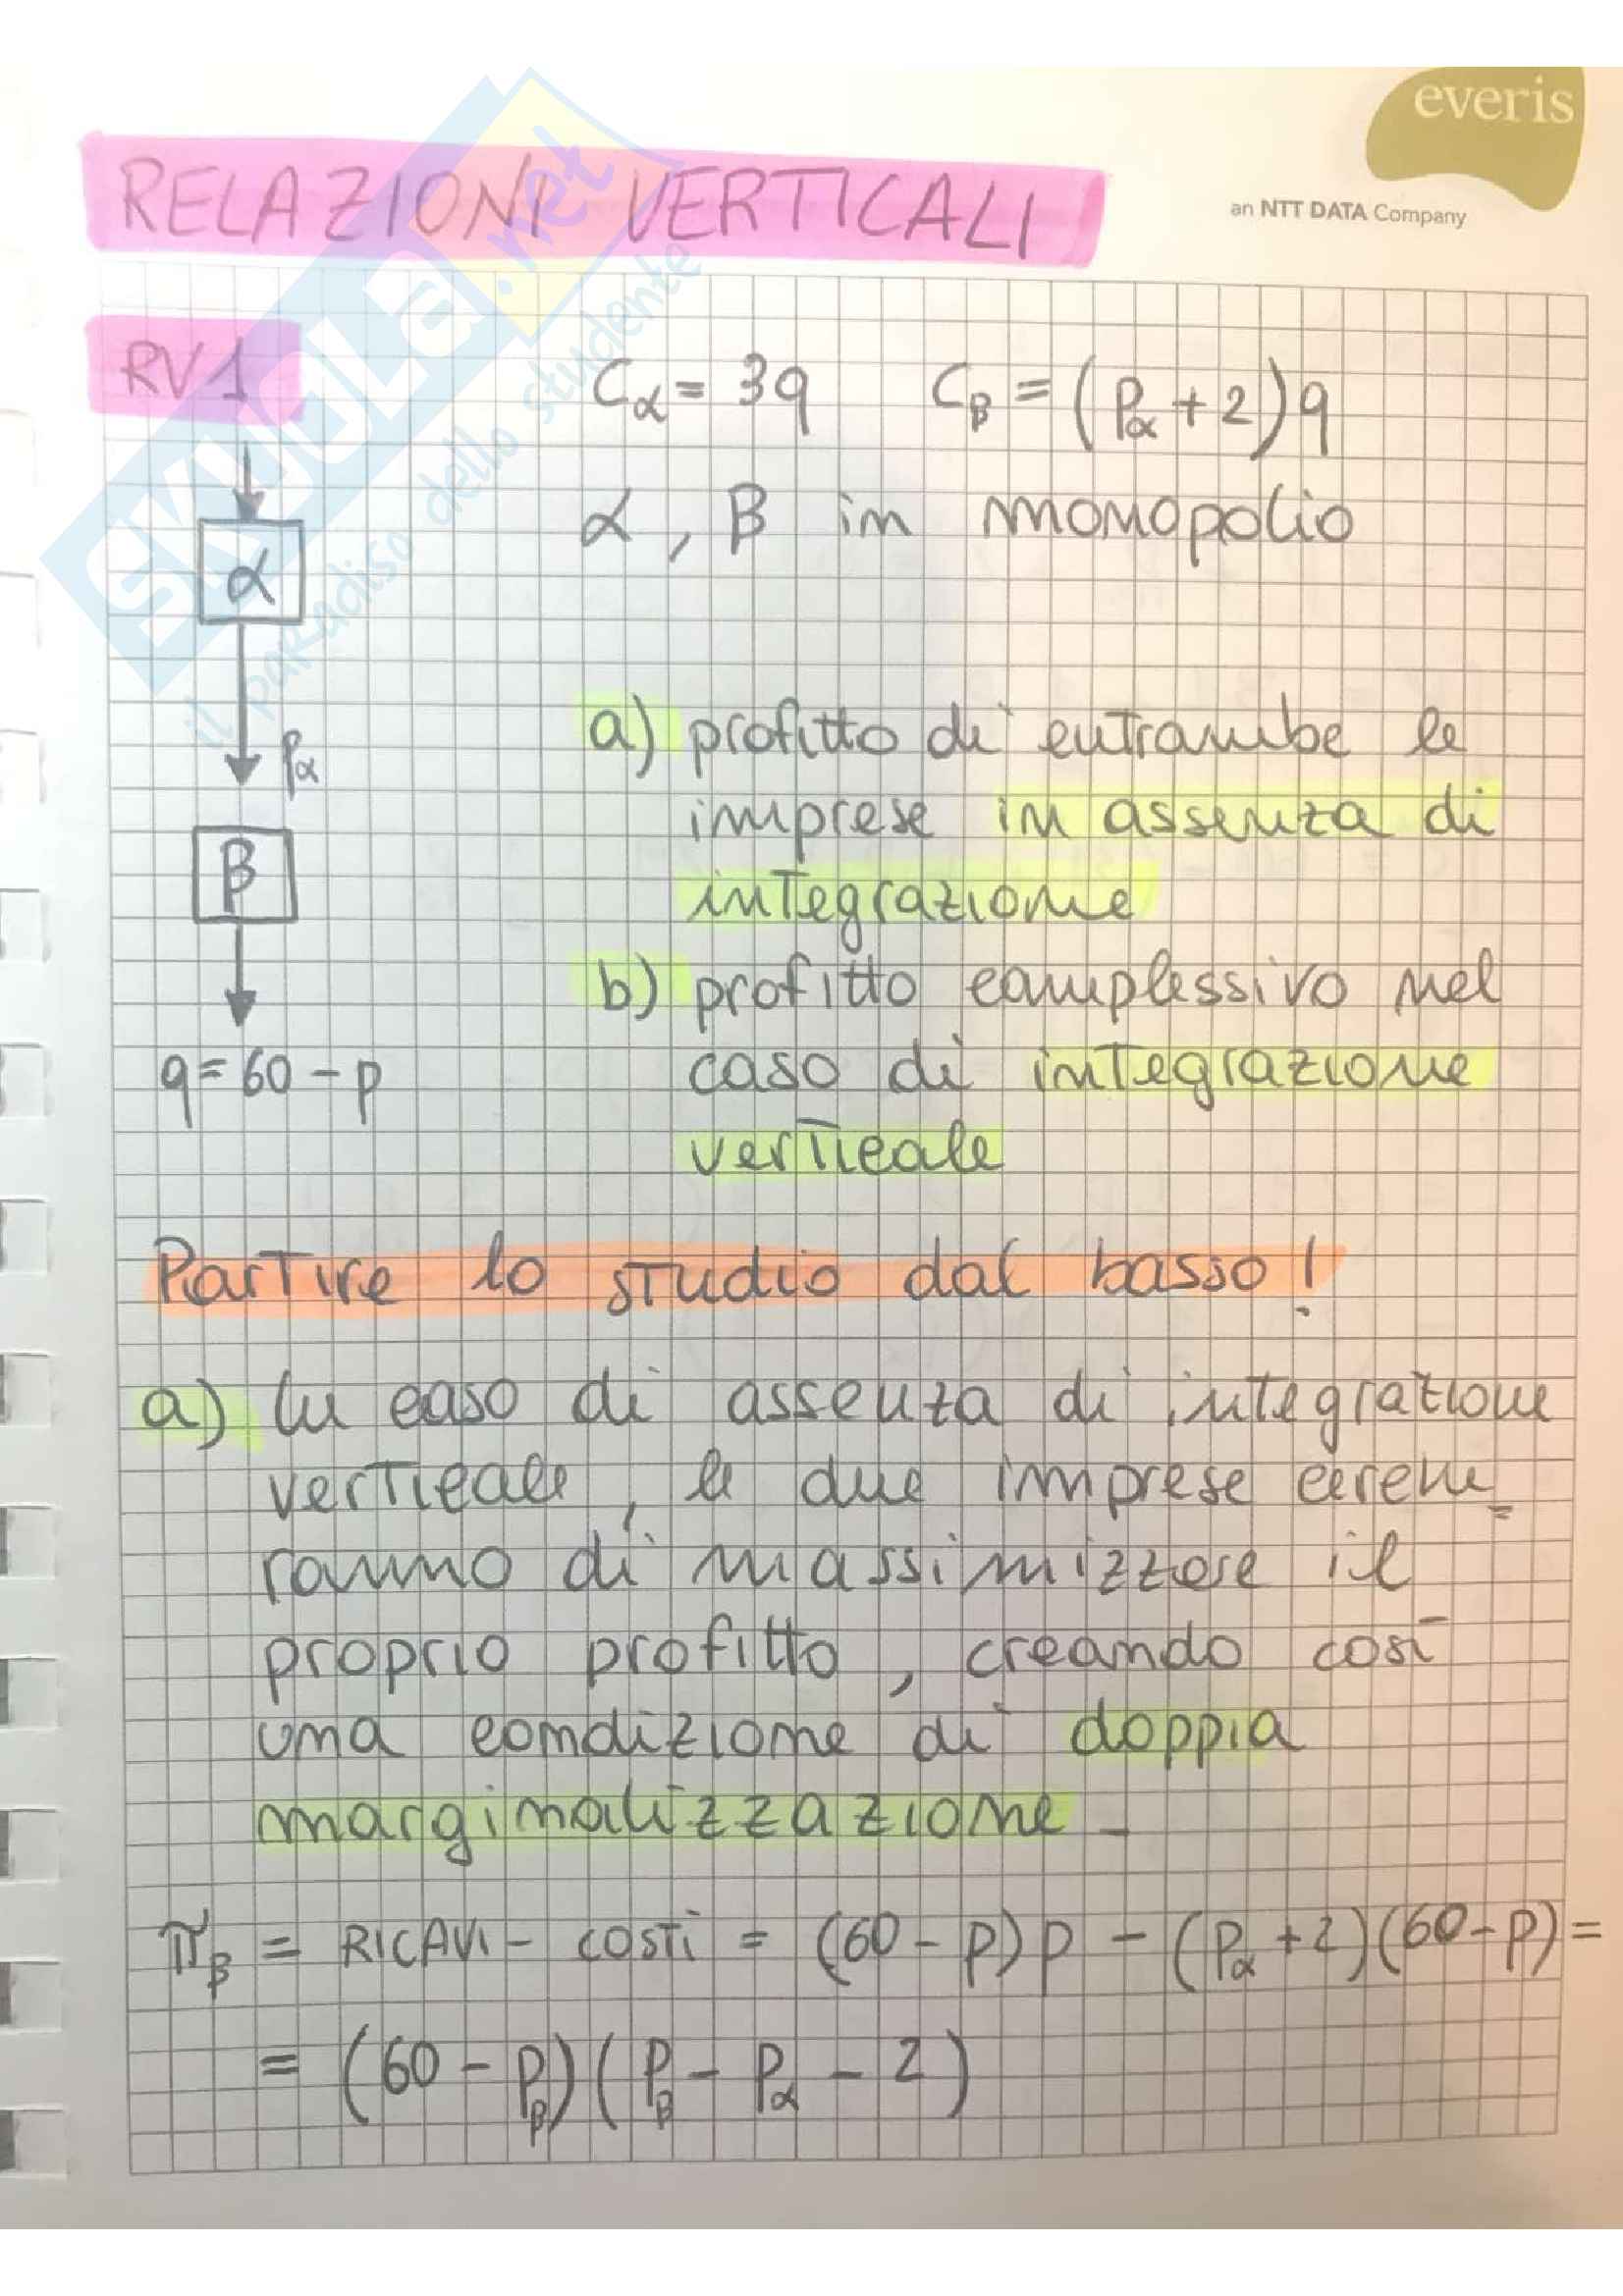 everis
an NTT DATA Company
RELAZIONI VERTICALI
SKUOLA.net
il paradiso dello studente
RV1
Cα = 3q Cβ = (Pα + 2)q
α, β in monopolio
α
Pα
β
q = 60 - p
a) profitto di entrambe le
imprese in assenza di
integrazione
b) profitto complessivo nel
caso di integrazione
verticale
Partire lo studio dal basso!
a) In caso di assenza di integrazione
verticale, le due imprese cerche_
ranno di massimizzare il
proprio profitto, creando così
una condizione di doppia
marginalizzazione.
πβ = RICAVI - COSTI = (60 - p)p - (Pα + 2)(60 - p) =
= (60 - Pβ)(Pβ - Pα - 2)